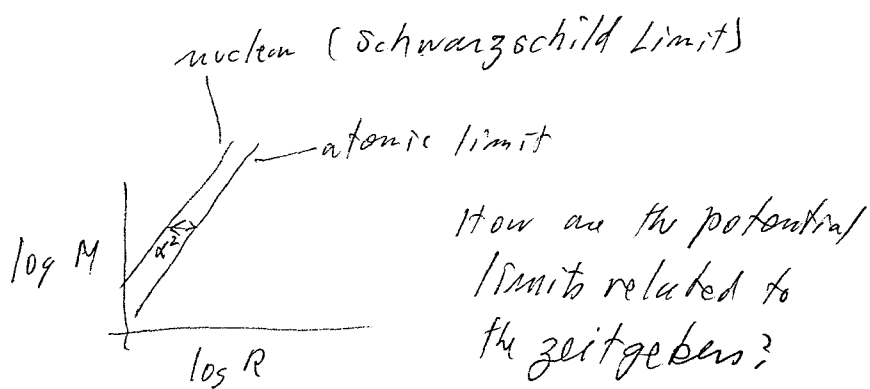 nuclear (Schwarzschild Limit)
atomic limit
log M
α²
log R
How are the potential
limits related to
the zeitgebers?